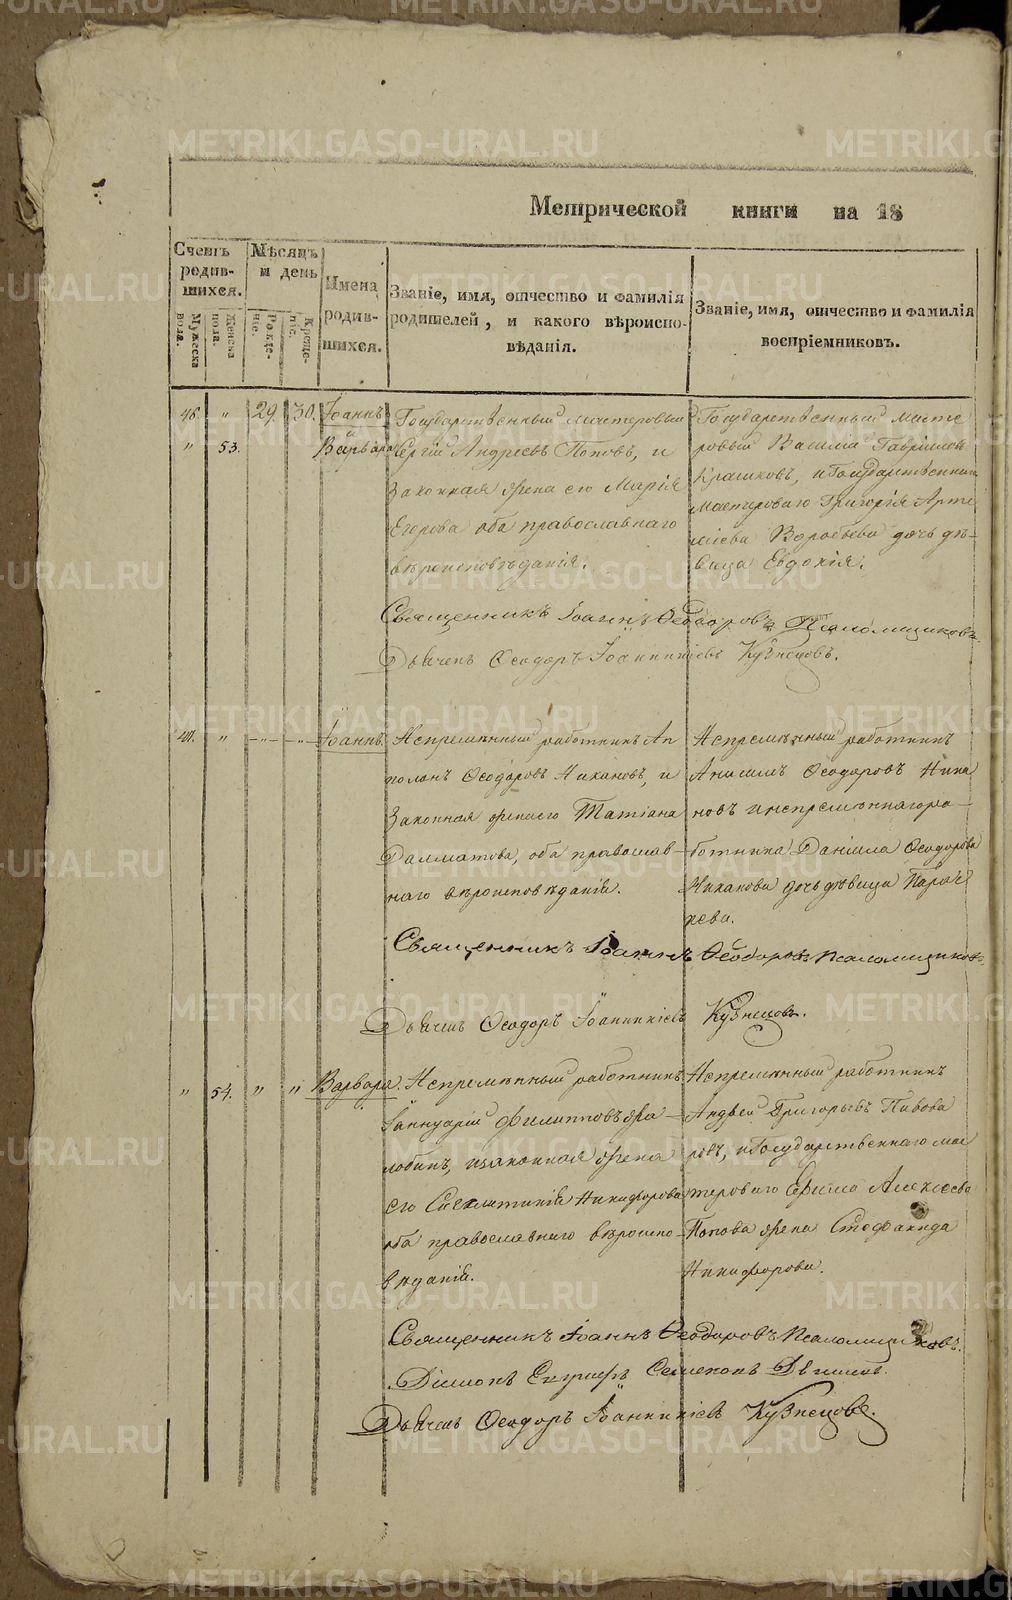 METRIKI.GASO-URAL.RU
Метрической книги на 18
Счетъ родившихся.
Мужеска пола.
Женска пола.
Мѣсяцъ и день
Рожденіе.
Крещеніе.
Имена родившихся.
Званіе, имя, отчество и фамилія родителей, и какого вѣроисповѣданія.
Званіе, имя, отчество и фамилія воспріемниковъ.
46. " 29. 30. Іоаннъ
" 53. Варвара
Государственный мастеровый
Сергій Андреевъ Поповъ, и
законная жена его Марія
Егорова оба православнаго
вѣроисповѣданія.
Государственный масте
ровый Василій Гаврилов
Крашковъ, и Государственнаго
мастероваго Григорія Арте
міева Воробьева дочь дѣ-
вица Евдокія.
Священникъ Іоаннъ Ѳеодоровъ Псаломщиковъ
Дьячекъ Ѳеодоръ Іоанникіевъ Кузнецовъ.
" Іоаннъ
Непремѣнный работникъ Ап
полонъ Ѳеодоровъ Никановъ, и
законная жена его Татіана
Далматова, оба православ-
наго вѣроисповѣданія.
Непремѣнный работникъ
Анисимъ Ѳеодоровъ Ника
новъ и непремѣннаго ра-
ботника Даніила Ѳеодорова
Никанова дочь дѣвица Парас
кева.
Священникъ Іоаннъ Ѳеодоровъ Псаломщиковъ
Дьячекъ Ѳеодоръ Іоанникіевъ Кузнецовъ.
" 54. " " Варвара.
Непремѣнный работникъ
Іаннуарій Филипповъ Жа-
лобинъ, и законная жена
его Никифорова
оба православнаго вѣроиспо-
вѣданія.
Непремѣнный работникъ
Андрей Григорьевъ Пивова
ровъ, и Государственнаго мас
тероваго Ефима Алексѣева
Попова жена Стефанида
Никифорова.
Священникъ Іоаннъ Ѳеодоровъ Псаломщиковъ.
Діаконъ
Дьячекъ Ѳеодоръ Іоанникіевъ Кузнецовъ.